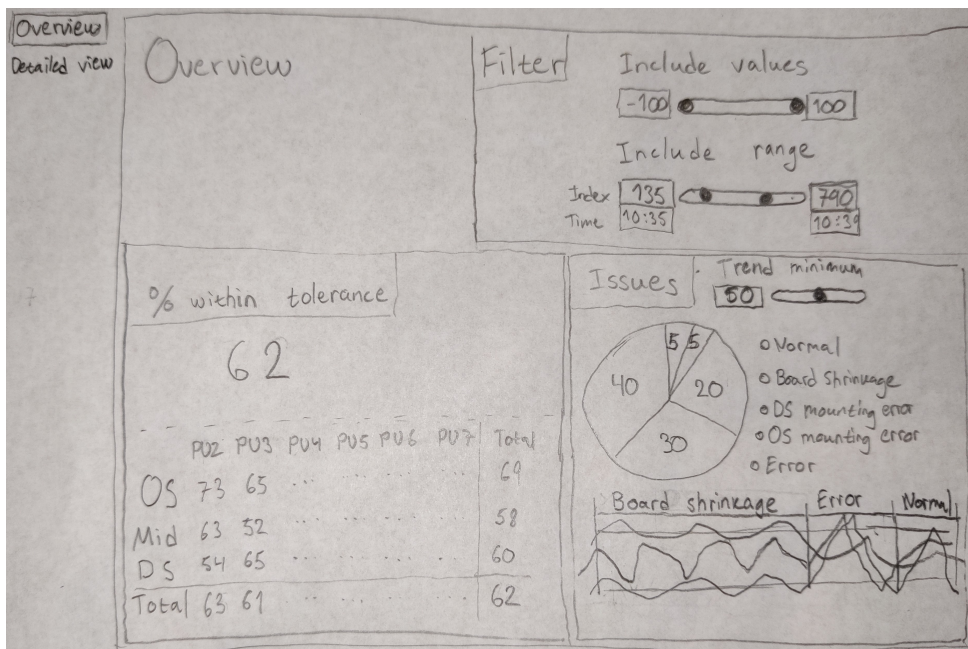 Overview
Detailed view
Overview
Filter
Include values
-100 100
Include range
Index 135 790
Time 10:35 10:39
% within tolerance
62
PU2 PU3 PU4 PU5 PU6 PU7 Total
OS 73 65 ... ... 69
Mid 63 52 ... ... 58
DS 54 65 ... ... 60
Total 63 61 ... ... 62
Issues
Trend minimum
50
5 5
40 20
30
Normal
Board Shrinkage
DS mounting error
OS mounting error
Error
Board shrinkage Error Normal